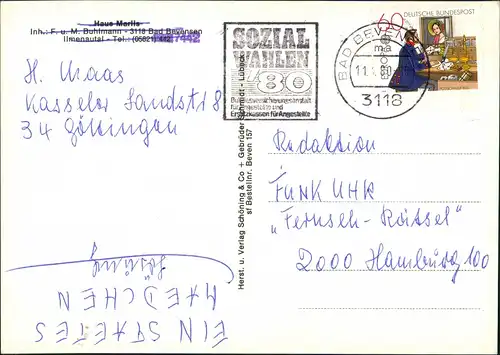 Haus Merlis
Inh.: F. u. M. Buhlmann - 3118 Bad Bevensen
Ilmenautal - Tel.: (05821) 7442
H. Maas
Kasseler Landstr 8
34 Göttingen
SOZIAL
WAHLEN
'80
Bundesversicherungsanstalt
für Angestellte und
Ersatzkassen für Angestellte
BAD BEVEN
ma
11.
80
3118
60
DEUTSCHE BUNDESPOST
Herst. u. Verlag Schöning & Co + Gebrüder Schmidt - Lübeck
sf Bestellnr. Beven 157
Redaktion
FUNK UHR
„Fernseh-Rätsel"
2000 Hamburg 100
Lösung
EIN SPAETES
MAEDCHEN